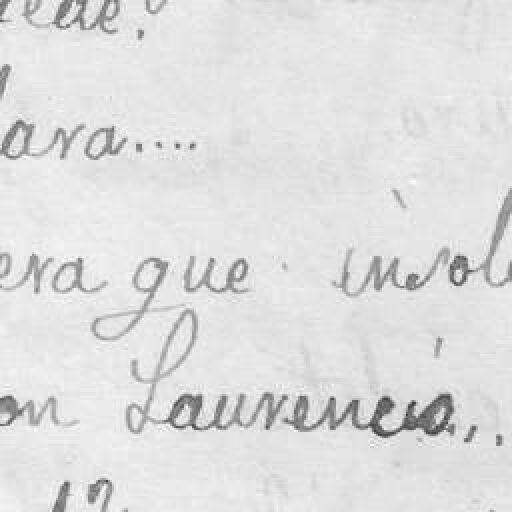 lara....
era que insol
on Laurencio..